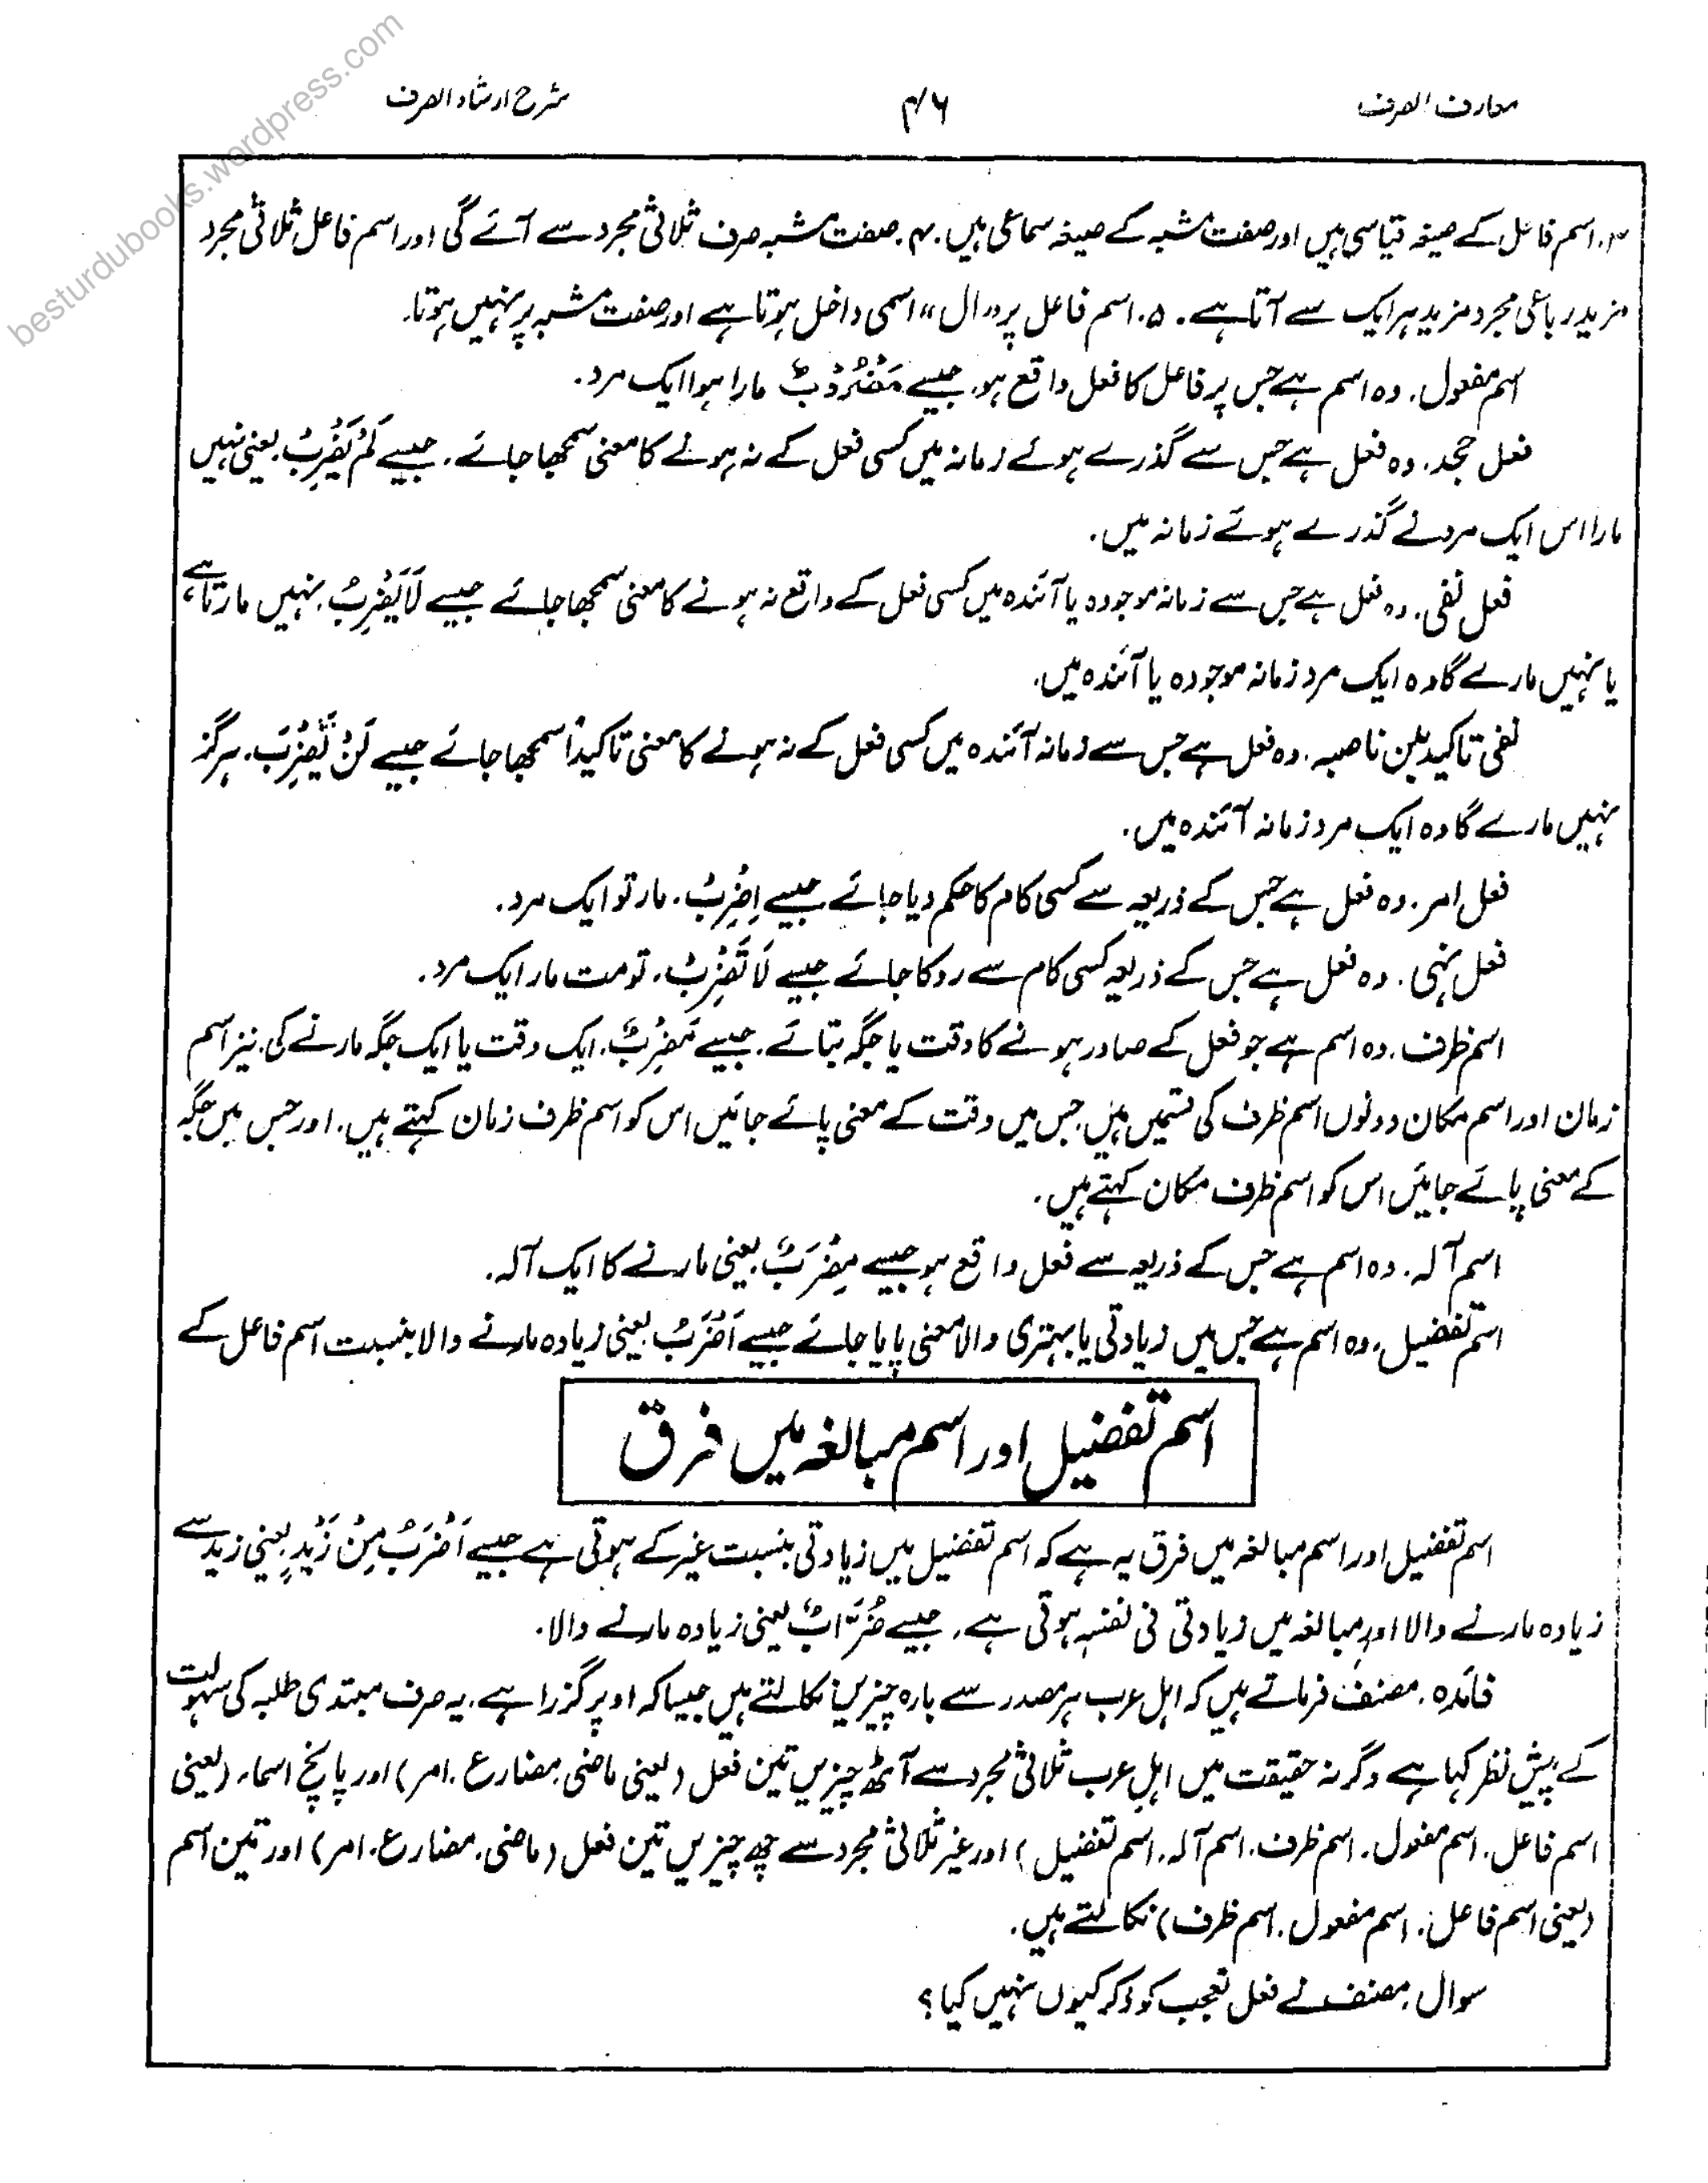 معارف الصرف
۴۶
شرح ارشاد الصرف
besturdubooks.wordpress.com
۳. اسم فاعل کے صیغہ قیاسی ہیں اور صفت مشبہ کے صیغہ سماعی ہیں. ۴. صفت مشبہ صرف ثلاثی مجرد سے آئے گی اور اسم فاعل ثلاثی مجرد
مزید رباعی مجرد مزید ہر ایک سے آتا ہے. ۵. اسم فاعل پر "ال" اسمی داخل ہوتا ہے اور صفت مشبہ پر نہیں ہوتا.
اسم مفعول. وہ اسم ہے جس پر فاعل کا فعل واقع ہو. جیسے مَضْرُوْبٌ مارا ہوا ایک مرد.
فعل جحد. وہ فعل ہے جس سے گذرے ہوئے زمانہ میں کسی فعل کے نہ ہونے کا معنی سمجھا جائے. جیسے لَمْ يَضْرِبْ یعنی نہیں
مارا اس ایک مرد نے گذرے ہوئے زمانہ میں.
فعل نفی. وہ فعل ہے جس سے زمانہ موجودہ یا آئندہ میں کسی فعل کے واقع نہ ہونے کا معنی سمجھا جائے جیسے لَا يَضْرِبُ. نہیں مارتا ہے،
یا نہیں مارے گا وہ ایک مرد زمانہ موجودہ یا آئندہ میں.
نفی تاکید بلن ناصبہ. وہ فعل ہے جس سے زمانہ آئندہ میں کسی فعل کے نہ ہونے کا معنی تاکیداً سمجھا جائے جیسے لَنْ يَّضْرِبَ. ہرگز
نہیں مارے گا وہ ایک مرد زمانہ آئندہ میں.
فعل امر. وہ فعل ہے جس کے ذریعہ سے کسی کام کا حکم دیا جائے جیسے اِضْرِبْ. مار تو ایک مرد.
فعل نہی. وہ فعل ہے جس کے ذریعہ کسی کام سے روکا جائے جیسے لَا تَضْرِبْ. تو مت مار ایک مرد.
اسم ظرف. وہ اسم ہے جو فعل کے صادر ہونے کا وقت یا جگہ بتائے. جیسے مَضْرِبٌ. ایک وقت یا ایک جگہ مارنے کی. نیز اسم
زمان اور اسم مکان دونوں اسم ظرف کی قسمیں ہیں. جس میں وقت کے معنی پائے جائیں اس کو اسم ظرف زمان کہتے ہیں. اور جس میں جگہ
کے معنی پائے جائیں اس کو اسم ظرف مکان کہتے ہیں.
اسم آلہ. وہ اسم ہے جس کے ذریعہ سے فعل واقع ہو جیسے مِضْرَبٌ. یعنی مارنے کا ایک آلہ.
اسم تفضیل. وہ اسم ہے جس میں زیادتی یا بہتری والا معنی پایا جائے جیسے اَضْرَبُ. یعنی زیادہ مارنے والا بنسبت اسم فاعل کے
اسم تفضیل اور اسم مبالغہ میں فرق
اسم تفضیل اور اسم مبالغہ میں فرق یہ ہے کہ اسم تفضیل میں زیادتی بنسبت غیر کے ہوتی ہے جیسے اَضْرَبُ مِنْ زَيْدٍ یعنی زید سے
زیادہ مارنے والا اور مبالغہ میں زیادتی فی نفسہ ہوتی ہے. جیسے ضَرَّابٌ یعنی زیادہ مارنے والا.
فائدہ. مصنف فرماتے ہیں کہ اہل عرب ہر مصدر سے بارہ چیزیں نکالتے ہیں جیسا کہ اوپر گزرا ہے. یہ صرف مبتدی طلبہ کی سہولت
کے پیش نظر کہا ہے وگرنہ حقیقت میں اہل عرب ثلاثی مجرد سے آٹھ چیزیں تین فعل (یعنی ماضی. مضارع. امر) اور پانچ اسماء (یعنی
اسم فاعل. اسم مفعول. اسم ظرف. اسم آلہ. اسم تفضیل) اور غیر ثلاثی مجرد سے چھ چیزیں تین فعل (ماضی. مضارع. امر) اور تین اسم
(یعنی اسم فاعل. اسم مفعول. اسم ظرف) نکالتے ہیں.
سوال. مصنف نے فعل تعجب کو ذکر کیوں نہیں کیا؟